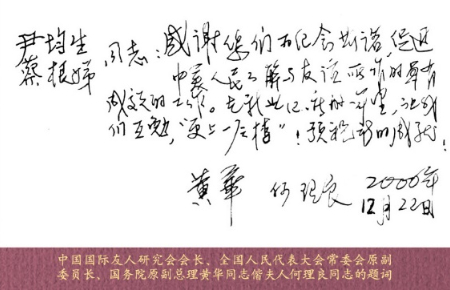 尹均生
蔡根娣 同志:感谢你们为纪念斯诺,促进
中美人民了解与友谊所作的卓有
成效的工作。在我此记新的一年里,让我
们互勉,“更上一层楼”!预祝新的成绩!
黄华 何理良 2000年
12月22日
中国国际友人研究会会长、全国人民代表大会常委会原副
委员长、国务院原副总理黄华同志偕夫人何理良同志的题词